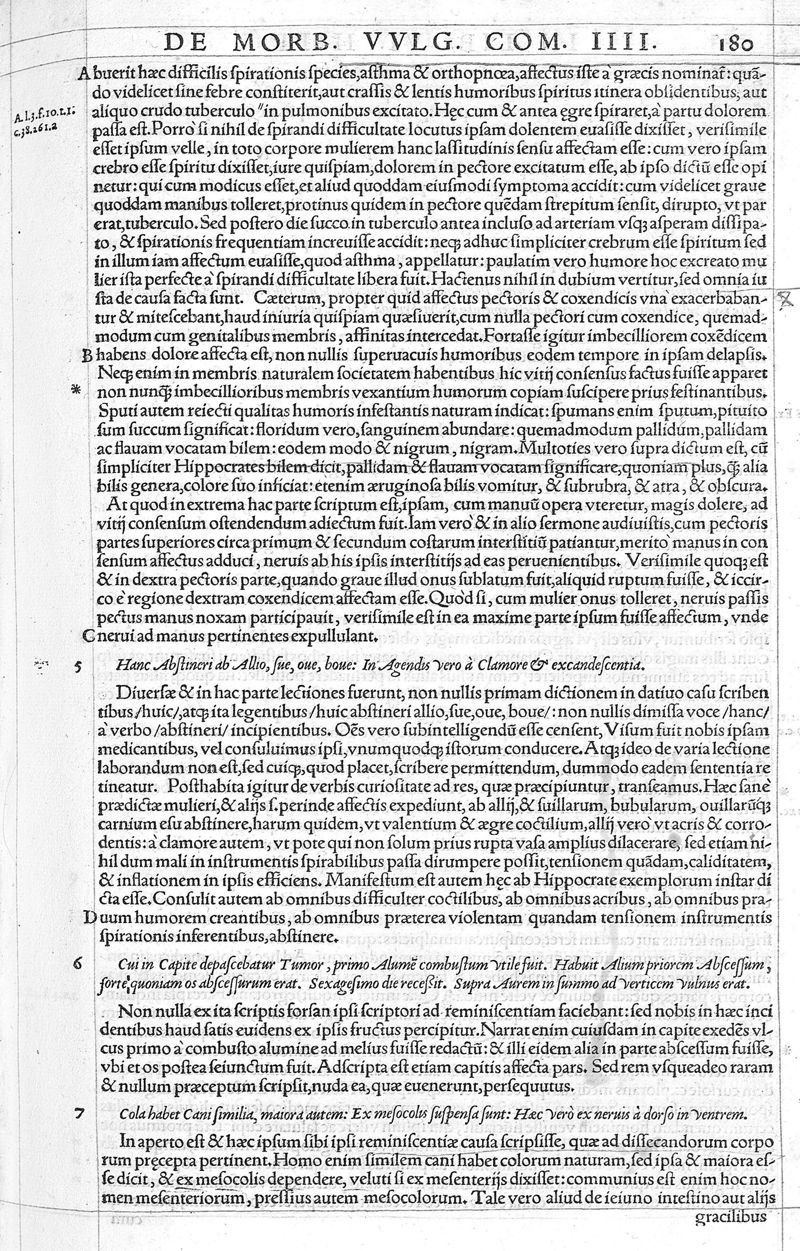 DE MORB. VVLG. COM. IIII. 180
A buerit hæc difficilis ſpirationis ſpecies, aſthma & orthopnœa, affectus iſte à græcis nominat̃: quã-
do videlicet ſine febre conſtiterit, aut craſſis & lentis humoribus ſpiritus itinera obſidentibus, aut
aliquo crudo tuberculo in pulmonibus excitato. Hęc cum & antea ęgre ſpiraret, à partu dolorem
paſſa eſt. Porrò ſi nihil de ſpirandi difficultate locutus ipſam dolentem euaſiſſe dixiſſet, veriſimile
eſſet ipſum velle, in toto corpore mulierem hanc laſſitudinis ſenſu affectam eſſe: cum vero ipſam
crebro eſſe ſpiritu dixiſſet, iure quiſpiam, dolorem in pectore excitatum eſſe, ab ipſo dictũ eſſe opi
netur: qui cum modicus eſſet, et aliud quoddam eiuſmodi ſymptoma accidit: cum videlicet graue
quoddam manibus tolleret, protinus quidem in pectore quẽdam ſtrepitum ſenſit, dirupto, vt par
erat, tuberculo. Sed poſtero die ſucco in tuberculo antea incluſo ad arteriam vſq; aſperam diſſipa-
to, & ſpirationis frequentiam increuiſſe accidit: neq; adhuc ſimpliciter crebrum eſſe ſpiritum ſed
in illum iam affectum euaſiſſe, quod aſthma, appellatur: paulatim vero humore hoc excreato mu
lier iſta perfecte à ſpirandi difficultate libera fuit. Hactenus nihil in dubium vertitur, ſed omnia iu
ſta de cauſa facta ſunt. Cæterum, propter quid affectus pectoris & coxendicis vnà exacerbaban-
tur & miteſcebant, haud iniuria quiſpiam quæſiuerit, cum nulla pectori cum coxendice, quemad-
modum cum genitalibus membris, affinitas intercedat. Fortaſſe igitur imbecilliorem coxẽdicem
B habens dolore affecta eſt, non nullis ſuperuacuis humoribus eodem tempore in ipſam delapſis.
Neq; enim in membris naturalem ſocietatem habentibus hic vitij conſenſus factus fuiſſe apparet
* non nunq̃ imbecillioribus membris vexantium humorum copiam ſuſcipere prius feſtinantibus.
Sputi autem reiecti qualitas humoris infeſtantis naturam indicat: ſpumans enim ſputum, pituito
ſum ſuccum ſignificat: floridum vero, ſanguinem abundare: quemadmodum pallidum, pallidam
ac flauam vocatam bilem: eodem modo & nigrum, nigram. Multoties vero ſupra dictum eſt, cũ
ſimpliciter Hippocrates bilem dicit, pallidam & flauam vocatam ſignificare, quoniam plus, q̃ alia
bilis genera, colore ſuo inficiat: etenim æruginoſa bilis vomitur, & ſubrubra, & atra, & obſcura.
At quod in extrema hac parte ſcriptum eſt, ipſam, cum manuũ opera vteretur, magis dolere, ad
vitij conſenſum oſtendendum adiectum fuit. Iam verò & in alio ſermone audiuiſtis, cum pectoris
partes ſuperiores circa primum & ſecundum coſtarum interſtitiũ patiantur, meritò manus in con
ſenſum affectus adduci, neruis ab his ipſis interſtitijs ad eas peruenientibus. Veriſimile quoq; eſt
& in dextra pectoris parte, quando graue illud onus ſublatum fuit, aliquid ruptum fuiſſe, & iccir-
co è regione dextram coxendicem affectam eſſe. Quòd ſi, cum mulier onus tolleret, neruis paſſis
pectus manus noxam participauit, veriſimile eſt in ea maxime parte ipſum fuiſſe affectum, vnde
C nerui ad manus pertinentes expullulant.
5 Hanc Abſtineri ab Allio, ſue, oue, boue: In Agendis vero à Clamore & excandeſcentia.
Diuerſæ & in hac parte lectiones fuerunt, non nullis primam dictionem in datiuo caſu ſcriben
tibus /huic/, atq; ita legentibus /huic abſtineri allio, ſue, oue, boue/: non nullis dimiſſa voce /hanc/
à verbo /abſtineri/ incipientibus. Oẽs vero ſubintelligendũ eſſe cenſent, Viſum fuit nobis ipſam
medicantibus, vel conſuluimus ipſi, vnumquodq; iſtorum conducere. Atq; ideo de varia lectione
laborandum non eſt, ſed cuiq;, quod placet, ſcribere permittendum, dummodo eadem ſententia re
tineatur. Poſthabita igitur de verbis curioſitate ad res, quæ præcipiuntur, tranſeamus. Hæc ſanè
prædictæ mulieri, & alijs ſ. perinde affectis expediunt, ab allij, & ſuillarum, bubularum, ouillarũq;
carnium eſu abſtinere, harum quidem, vt valentium & ægre coctilium, allij verò vt acris & corro-
dentis: à clamore autem, vt pote qui non ſolum prius rupta vaſa amplius dilacerare, ſed etiam ni-
hil dum mali in inſtrumentis ſpirabilibus paſſa dirumpere poſſit, tenſionem quãdam, caliditatem,
& inflationem in ipſis efficiens. Manifeſtum eſt autem hęc ab Hippocrate exemplorum inſtar di
cta eſſe. Conſulit autem ab omnibus difficulter coctilibus, ab omnibus acribus, ab omnibus pra-
D uum humorem creantibus, ab omnibus præterea violentam quandam tenſionem inſtrumentis
ſpirationis inferentibus, abſtinere.
6 Cui in Capite depaſcebatur Tumor, primo Alumẽ combuſtum vtile fuit. Habuit Alium priorem Abſceſſum,
forte, quoniam os abſceſſurum erat. Sexageſimo die receſſit. Supra Aurem in ſummo ad verticem vulnus erat.
Non nulla ex ita ſcriptis forſan ipſi ſcriptori ad reminiſcentiam faciebant: ſed nobis in hæc inci
dentibus haud ſatis euidens ex ipſis fructus percipitur. Narrat enim cuiuſdam in capite exedẽs vl-
cus primo à combuſto alumine ad melius fuiſſe redactũ: & illi eidem alia in parte abſceſſum fuiſſe,
vbi et os poſtea ſeiunctum fuit. Adſcripta eſt etiam capitis affecta pars. Sed rem vſqueadeo raram
& nullum præceptum ſcripſit, nuda ea, quæ euenerunt, perſequutus.
7 Cola habet Cani ſimilia, maiora autem: Ex meſocolis ſuſpenſa ſunt: Hæc verò ex neruis à dorſo in ventrem.
In aperto eſt & hæc ipſum ſibi ipſi reminiſcentiæ cauſa ſcripſiſſe, quæ ad diſſecandorum corpo
rum pręcepta pertinent. Homo enim ſimilem cani habet colorum naturam, ſed ipſa & maiora eſ-
ſe dicit, & ex meſocolis dependere, veluti ſi ex meſenterijs dixiſſet: communius eſt enim hoc no-
men meſenteriorum, preſſius autem meſocolorum. Tale vero aliud de ieiuno inteſtino aut alijs
gracilibus